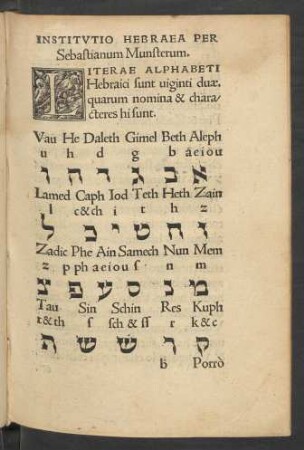 INSTITVTIO HEBRAEA PER
Sebastianum Munsterum.
LITERAE ALPHABETI
Hebraici sunt uiginti duæ,
quarum nomina & chara/
cteres hi sunt.
Vau He Daleth Gimel Beth Aleph
u h d g b aeiou
א ב ג ד ה ו
Lamed Caph Iod Teth Heth Zain
l c&ch i t h z
ז ח ט י כ ל
Zadic Phe Ain Samech Nun Mem
z p ph aeiou s n m
מ נ ס ע פ צ
Tau Sin Schin Res Kuph
t&th s sch & ss r k&c
ק ר שׁ שׂ ת
b Porrò